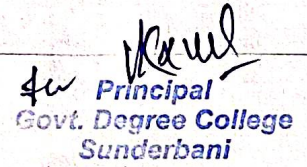 for Principal
Govt. Degree College
Sunderbani